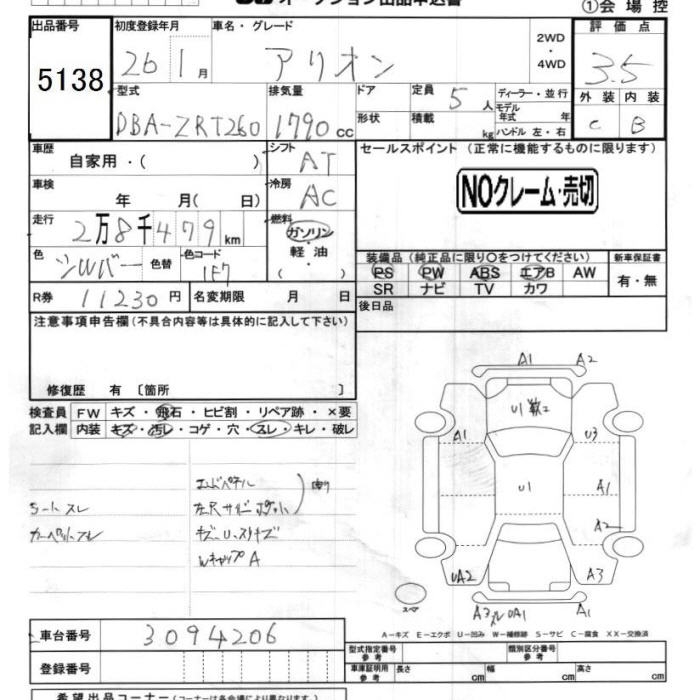 オークション出品申込書
①会場控
出品番号 初度登録年月 車名・グレード 評価点
5138 26 1月 アリオン 2WD・4WD 3.5
型式 排気量 ドア 定員 5人 ディーラー・並行 外装 内装
DBA-ZRT260 1790cc 形状 積載 kg モデル年式 年 C B
ハンドル 左・右
車歴 シフト セールスポイント (正常に機能するものに限ります)
自家用・( ) AT
車検 冷房 NOクレーム・売切
年 月( 日) AC
走行 燃料
2万8千479km ガソリン・軽油・( )
色 シルバー 色替 色コード 1F7
装備品 (純正品に限り○をつけてください) 新車保証書
PS PW ABS エアB AW 有・無
SR ナビ TV カワ
R券 11230円 名変期限 月 日 後日品
注意事項申告欄(不具合内容等は具体的に記入して下さい)
修復歴 有 〔箇所 〕
検査員 FW キズ・飛石・ヒビ割・リペア跡・×要
記入欄 内装 キズ・汚レ・コゲ・穴・スレ・キレ・破レ
シートスレ
カーペットスレ
キズ U.スリキズ
Wキャップ A
A1 A2
U1
A1 U3
U1 A1
A2
UA2 A3
スペア
A1
A-キズ E-エクボ U-凹み W-補修跡 S-サビ C-腐食 XX-交換済
車台番号 3094206
型式指定番号 参考 類別区分番号 参考
登録番号 車庫証明用 参考 長さ cm 幅 cm 高さ cm
希望出品コーナー(コーナーは各会場により異なります)